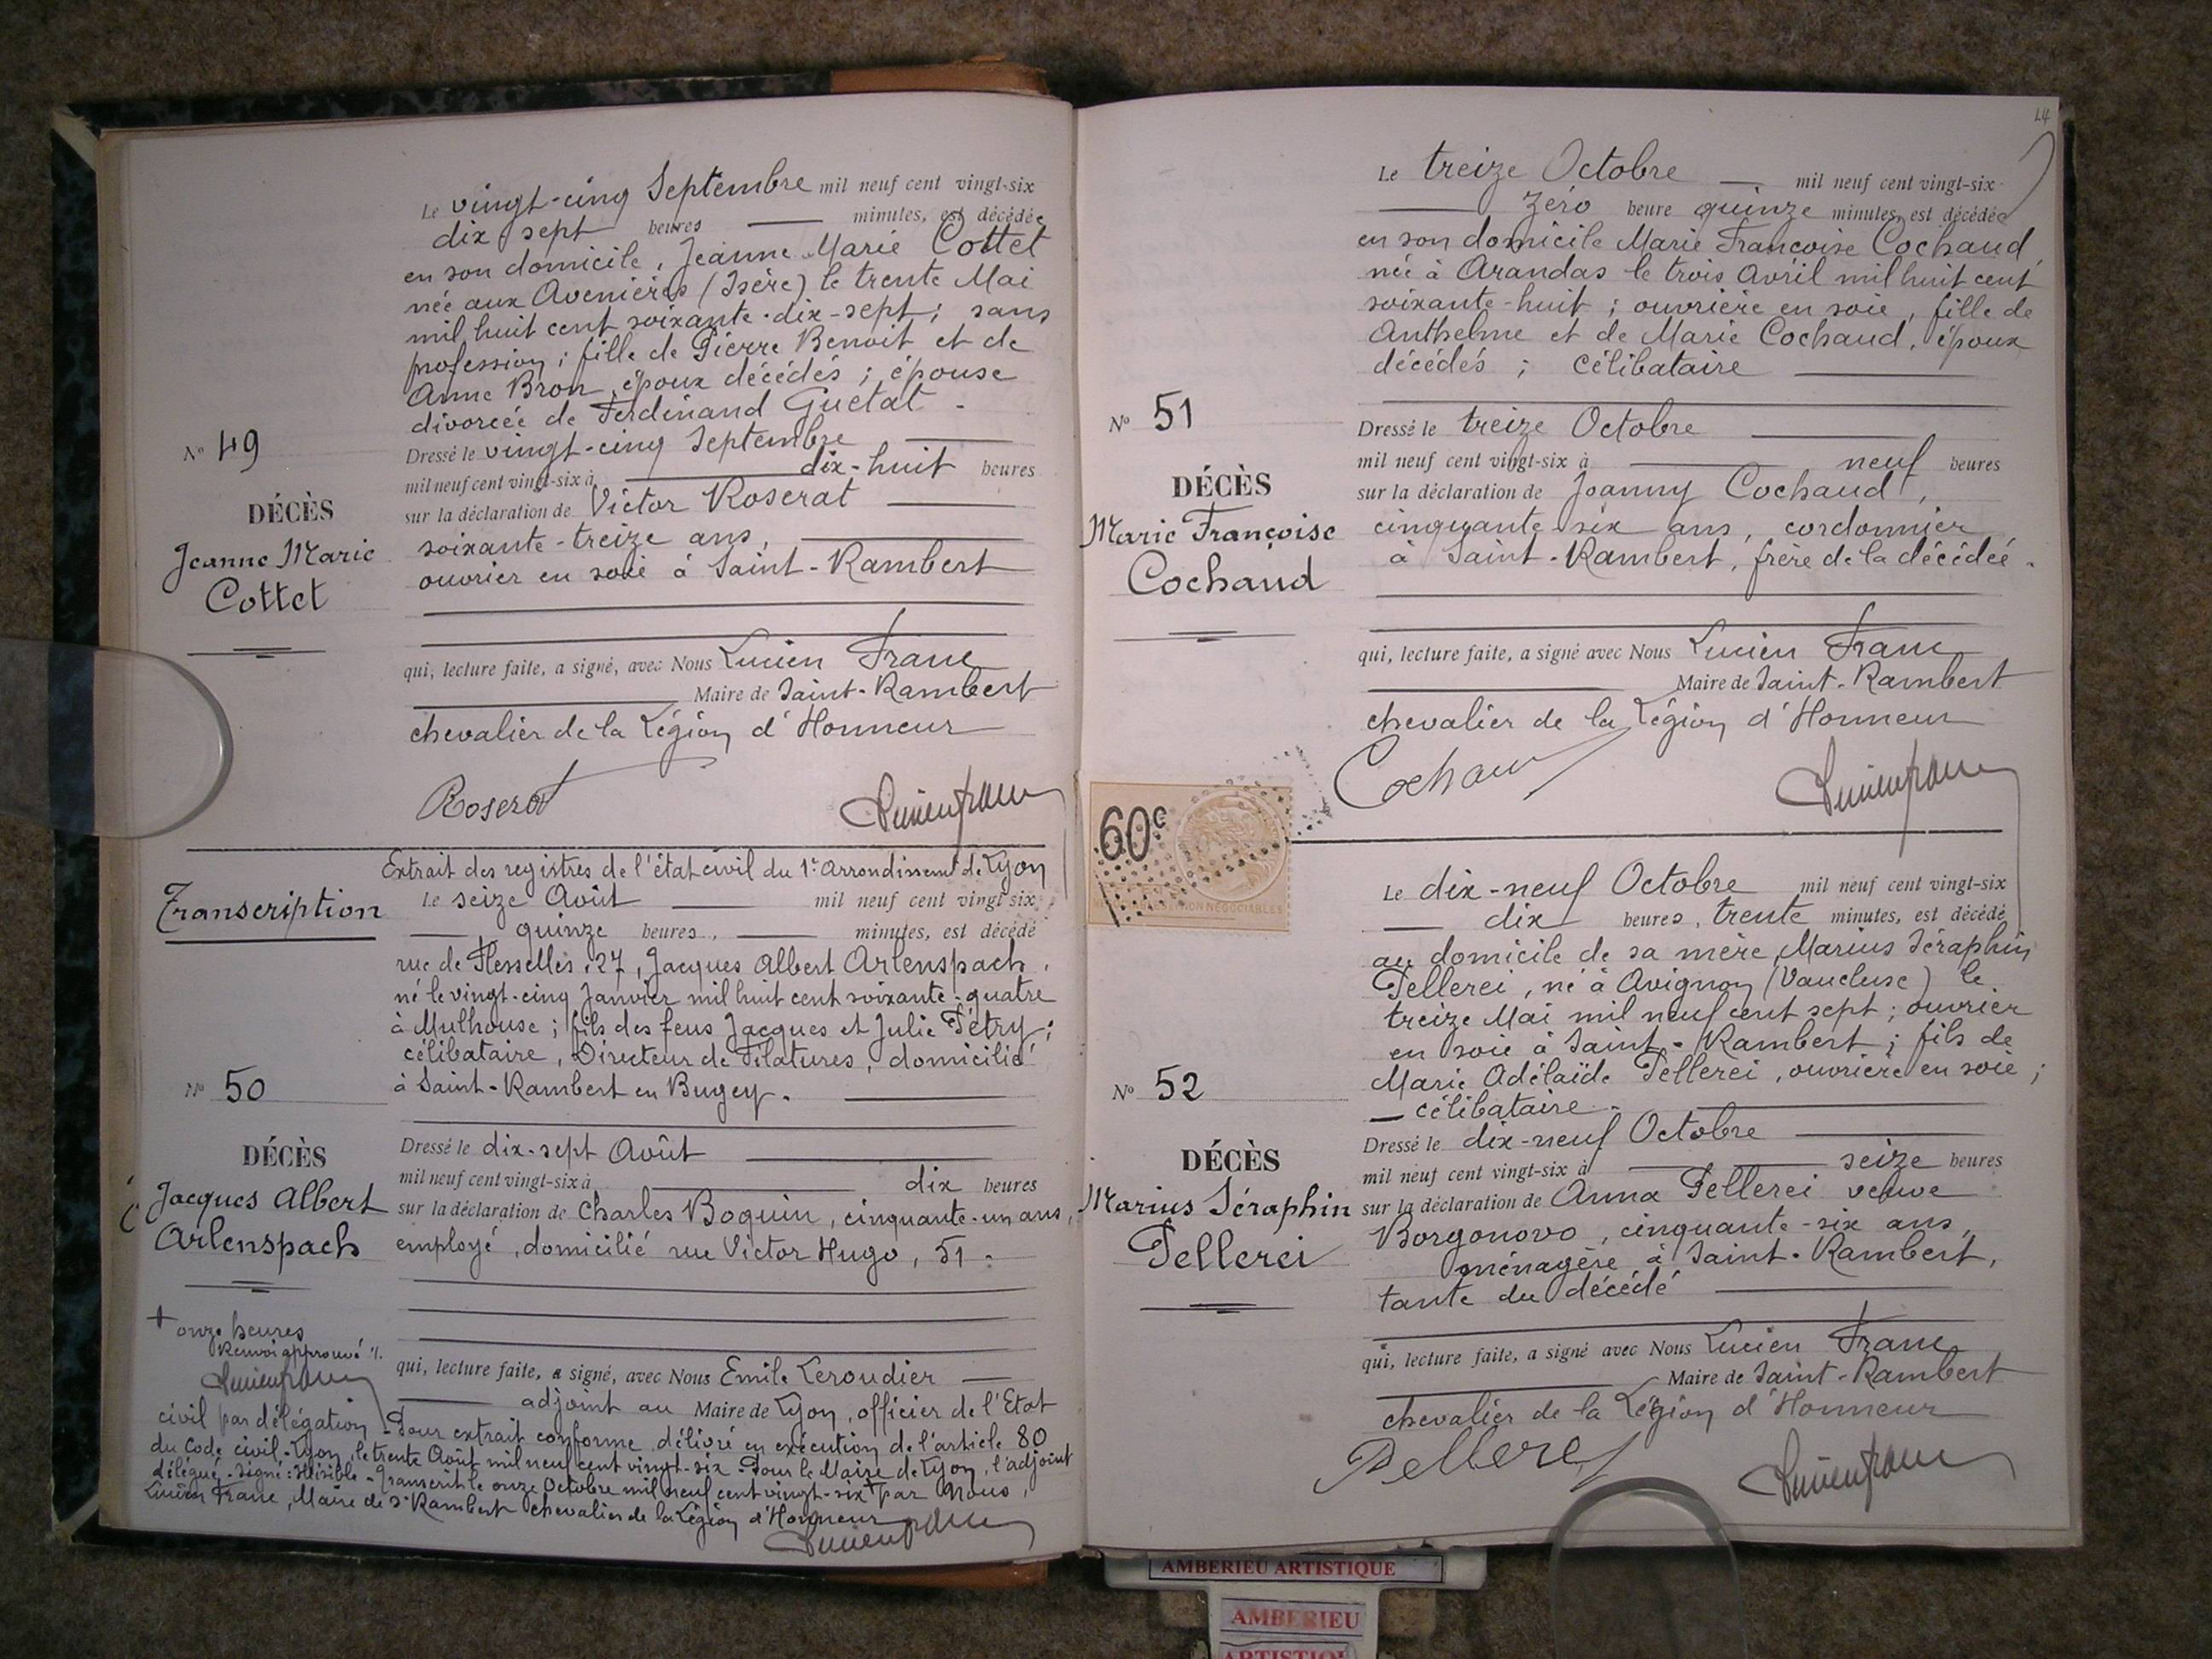 Le vingt-cinq Septembre mil neuf cent vingt-six
dix sept heures minutes, est décédée
en son domicile, Jeanne Marie Cottet
née aux Avenières (Isère) le trente Mai
mil huit cent soixante-dix-sept; sans
profession; fille de Pierre Benoit et de
Anne Bron, époux décédés; épouse
divorcée de Ferdinand Guetat.
N° 49
DÉCÈS
Jeanne Marie
Cottet
Dressé le vingt-cinq Septembre
mil neuf cent vingt-six à dix-huit heures
sur la déclaration de Victor Roserat
soixante-treize ans,
ouvrier en soie à Saint-Rambert
qui, lecture faite, a signé, avec Nous Lucien Franc
Maire de Saint-Rambert
chevalier de la Légion d'Honneur
Roserat Lucien Franc
Extrait des registres de l'état civil du 1er Arrondissemt de Lyon
Transcription
Le seize Août mil neuf cent vingt six,
quinze heures, minutes, est décédé
rue de Flesselles, 27, Jacques Albert Arlenspach,
né le vingt-cinq Janvier mil huit cent soixante-quatre
à Mulhouse; fils des feus Jacques et Julie Pétry;
célibataire, Directeur de Filatures, domicilié
à Saint-Rambert en Bugey.
N° 50
DÉCÈS
Jacques Albert
Arlenspach
Dressé le dix-sept Août
mil neuf cent vingt-six à dix heures
sur la déclaration de Charles Boquin, cinquante-un ans,
employé, domicilié rue Victor Hugo, 51.
+ onze heures
Renvoi approuvé
Lucien Franc
qui, lecture faite, a signé, avec Nous Emile Leroudier
adjoint au Maire de Lyon, officier de l'Etat
civil par délégation - Pour extrait conforme délivré en exécution de l'article 80
du Code civil - Lyon, le trente Août mil neuf cent vingt-six - Pour le Maire de Lyon, l'adjoint
délégué - Signé: Illisible - Transcrit le onze Octobre mil neuf cent vingt-six + par Nous,
Lucien Franc, Maire de St Rambert chevalier de la Légion d'Honneur
Lucien Franc
44
Le treize Octobre mil neuf cent vingt-six
zéro heure quinze minutes, est décédée
en son domicile Marie Françoise Cochaud
née à Arandas le trois Avril mil huit cent
soixante-huit; ouvrière en soie, fille de
Anthelme et de Marie Cochaud, époux
décédés; célibataire
N° 51
DÉCÈS
Marie Françoise
Cochaud
Dressé le treize Octobre
mil neuf cent vingt-six à neuf heures
sur la déclaration de Joanny Cochaud,
cinquante-six ans, cordonnier
à Saint-Rambert, frère de la décédée.
qui, lecture faite, a signé avec Nous Lucien Franc
Maire de Saint-Rambert
chevalier de la Légion d'Honneur
Cochaud Lucien Franc
60c
NÉGOCIABLES
Le dix-neuf Octobre mil neuf cent vingt-six
dix heures, trente minutes, est décédé
au domicile de sa mère, Marius Séraphin
Pellerei, né à Avignon (Vaucluse) le
treize Mai mil neuf cent sept; ouvrier
en soie à Saint-Rambert; fils de
Marie Adélaïde Pellerei, ouvrière en soie;
célibataire.
N° 52
DÉCÈS
Marius Séraphin
Pellerei
Dressé le dix-neuf Octobre
mil neuf cent vingt-six à seize heures
sur la déclaration de Anna Pellerei veuve
Borgonovo, cinquante-six ans,
ménagère à Saint-Rambert,
tante du décédé
qui, lecture faite, a signé avec Nous Lucien Franc
Maire de Saint-Rambert
chevalier de la Légion d'Honneur
Pellerei Lucien Franc
AMBERIEU ARTISTIQUE
AMBERIEU
ARTISTIQUE